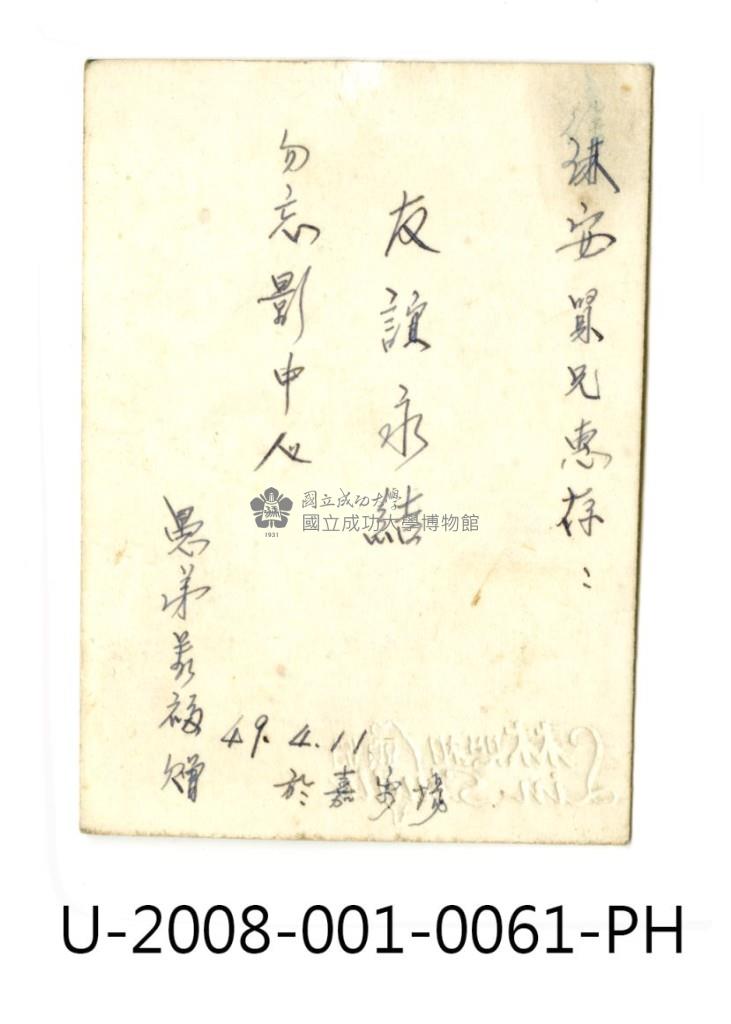 琳安賢兄惠存：
友誼永結
勿忘影中人
愚弟義福贈
49.4.11
於嘉場
國立成功大學
國立成功大學博物館
1931
U-2008-001-0061-PH